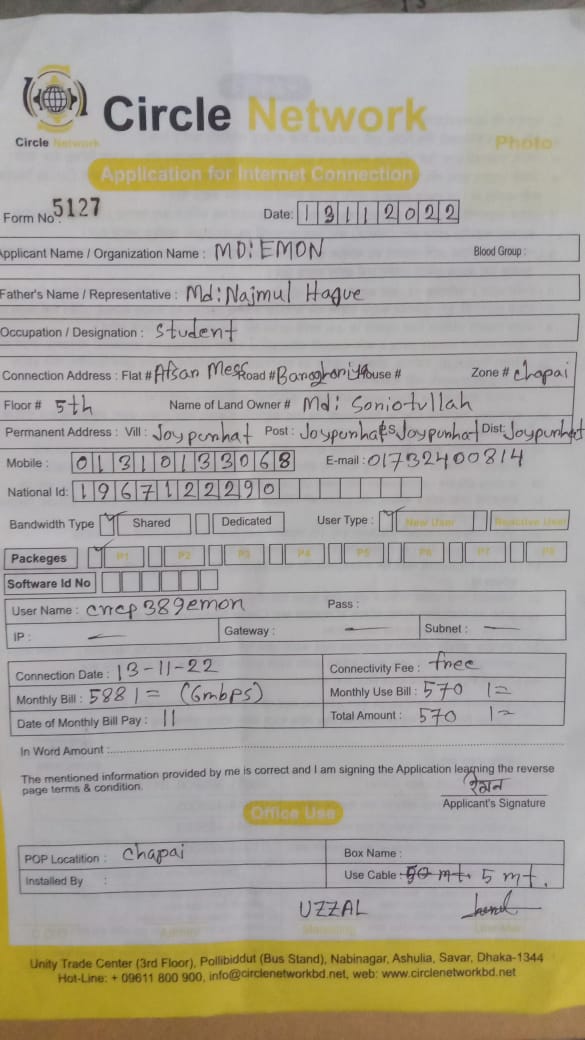 Circle Network
Circle Network
Photo
Application for Internet Connection
Form No: 5127 Date: 13112022
Applicant Name / Organization Name : MD: EMON Blood Group :
Father's Name / Representative : Md: Najmul Haque
Occupation / Designation : Student
Connection Address : Flat # Afsan Mess Road # House # Zone # Chapai
Floor # 5th Name of Land Owner # Md:
Permanent Address : Vill : Joypurhat Post : Joypurhat PS: Joypurhat Dist: Joypurhat
Mobile : 01310133068 E-mail : 01732400814
National Id: 1967122290
Bandwidth Type Shared Dedicated User Type : New User Reactive User
Packeges P1 P2 P3 P4 P5 P6 P7 P8
Software Id No
User Name : cncp389emon Pass :
IP : — Gateway : — Subnet : —
Connection Date : 13-11-22 Connectivity Fee : free
Monthly Bill : 588/= (6mbps) Monthly Use Bill : 570/=
Date of Monthly Bill Pay : 11 Total Amount : 570/=
In Word Amount :
The mentioned information provided by me is correct and I am signing the Application learning the reverse
page terms & condition.
Applicant's Signature
Office Use
POP Locatition : Chapai Box Name :
Installed By : Use Cable : 50 mt. 5 mt.
UZZAL
Unity Trade Center (3rd Floor), Pollibiddut (Bus Stand), Nabinagar, Ashulia, Savar, Dhaka-1344
Hot-Line: + 09611 800 900, info@circlenetworkbd.net, web: www.circlenetworkbd.net